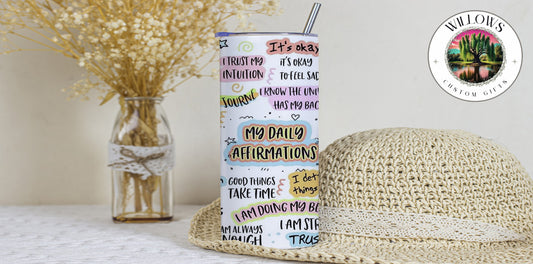 It's okay
I TRUST MY
INTUITION
IT'S OKAY
TO FEEL SAD
JOURNE
I KNOW THE UNI
HAS MY BAC
MY DAILY
AFFIRMATIONS
GOOD THINGS
TAKE TIME
I det
things
I AM DOING MY BE
AM ALWAYS
NOUGH
I AM STR
TRUS
WILLOWS
CUSTOM GIFTS